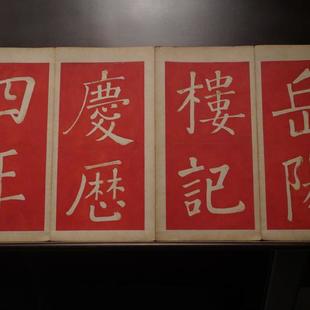 岳陽
樓記
慶暦
四年